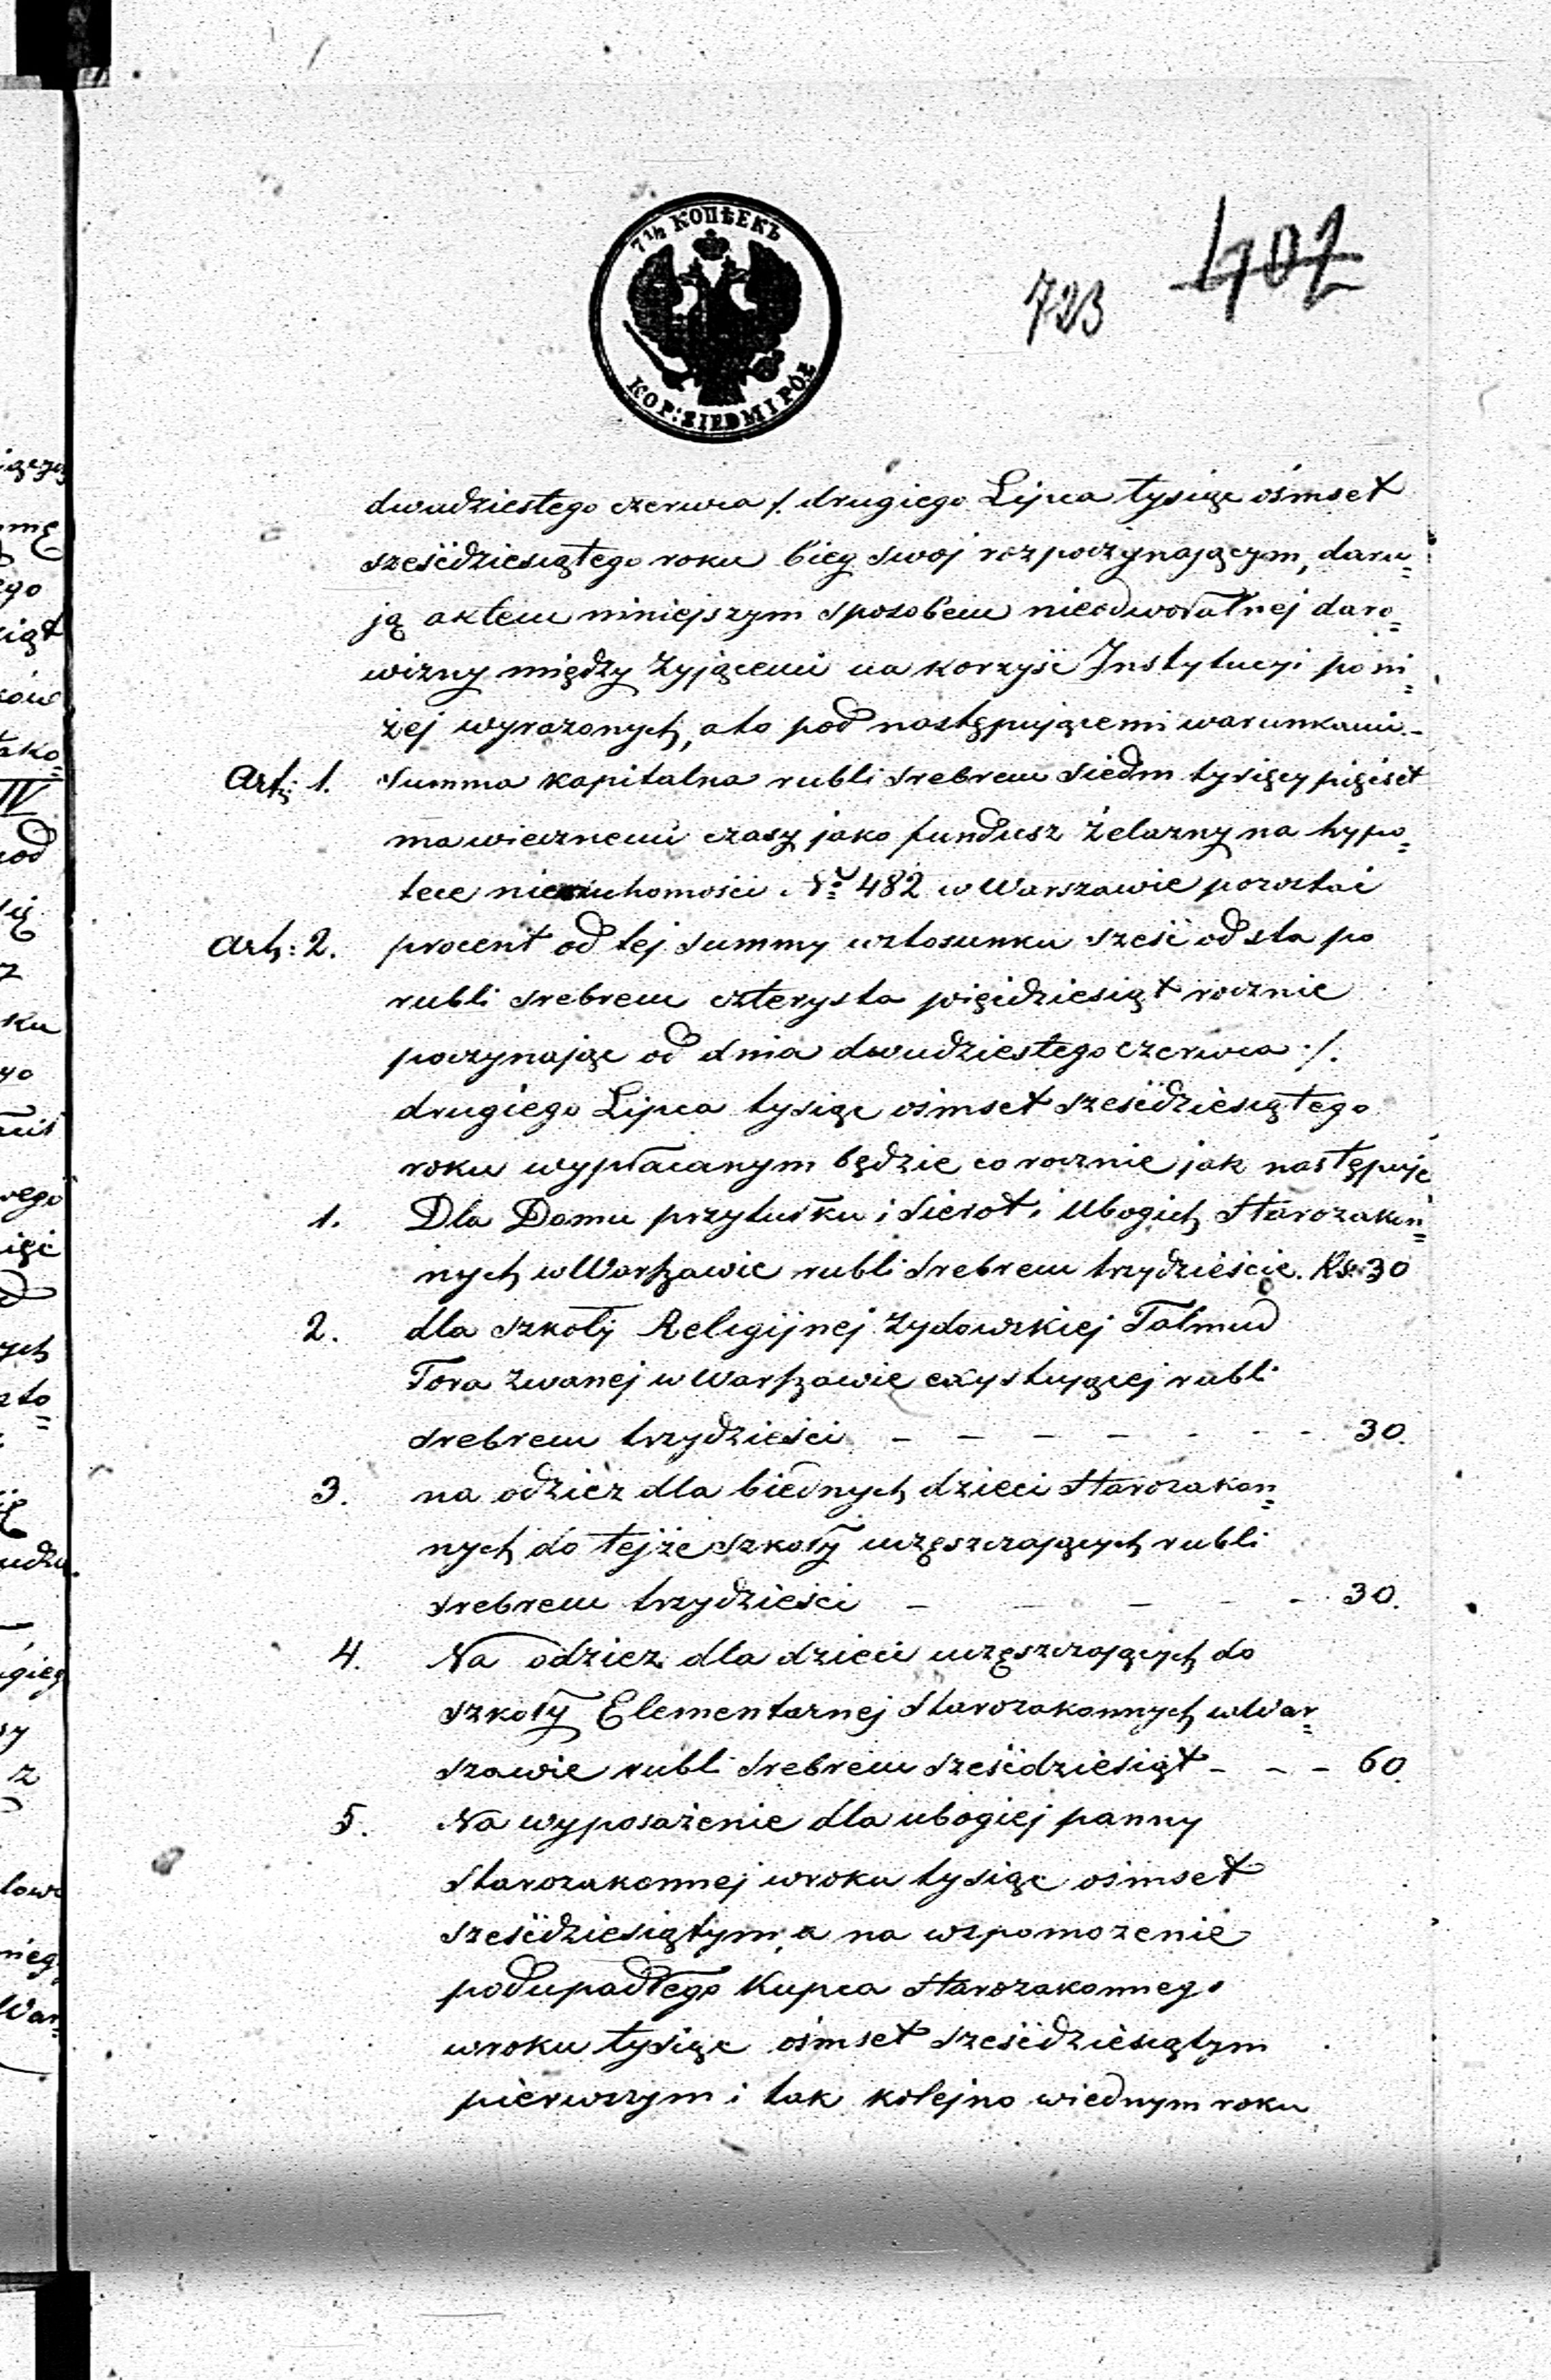 7 1/2 КОПѢЕКЪ
KOP: SIEDM I PÓŁ
723
402
dwudziestego czerwca /. drugiego Lipca tysiąc ośmset
sześćdziesiątego roku bieg swój rozpoczynającym, daru=
ją aktem niniejszym sposobem nieodwołalnej daro=
wizny między żyjącemi na korzyść Instytucyi poni=
żej wyrażonych, a to pod następującemi warunkami. –
Art: 1. Summa kapitalna rubli srebrem siedm tysięcy pięćset
ma wiecznemi czasy jako fundusz żelazny na hypo=
tece nieruchomości No 482 w Warszawie pozostać
Art: 2. procent od tej summy w stosunku sześć od sta po
rubli srebrem czterysta pięćdziesiąt rocznie
poczynając od dnia dwudziestego czerwca ./.
drugiego Lipca tysiąc ośmset sześćdziesiątego
roku wypłacanym będzie corocznie jak następuje
1. Dla Domu przytułku i Sierot i Ubogich Starozakon=
nych w Warszawie rubli srebrem trzydzieście. Rs. 30
2. dla szkoły Religijnej żydowskiej Talmud
Tora zwanej w Warszawie exystującej rubli
srebrem trzydzieści – – – – – – – 30.
3. na odzież dla biednych dzieci Starozakon=
nych do tejże szkoły uczęszczających rubli
srebrem trzydzieści – – – – – 30.
4. Na odzież dla dzieci uczęszczających do
szkoły Elementarnej Starozakonnych w War=
szawie rubli srebrem sześćdziesiąt – – – 60.
5. Na wyposażenie dla ubogiej panny
Starozakonnej w roku tysiąc ośmset
sześćdziesiątym, a na wspomożenie
podupadłego Kupca Starozakonnego
w roku tysiąc ośmset sześćdziesiątym
pierwszym i tak kolejno w jednym roku